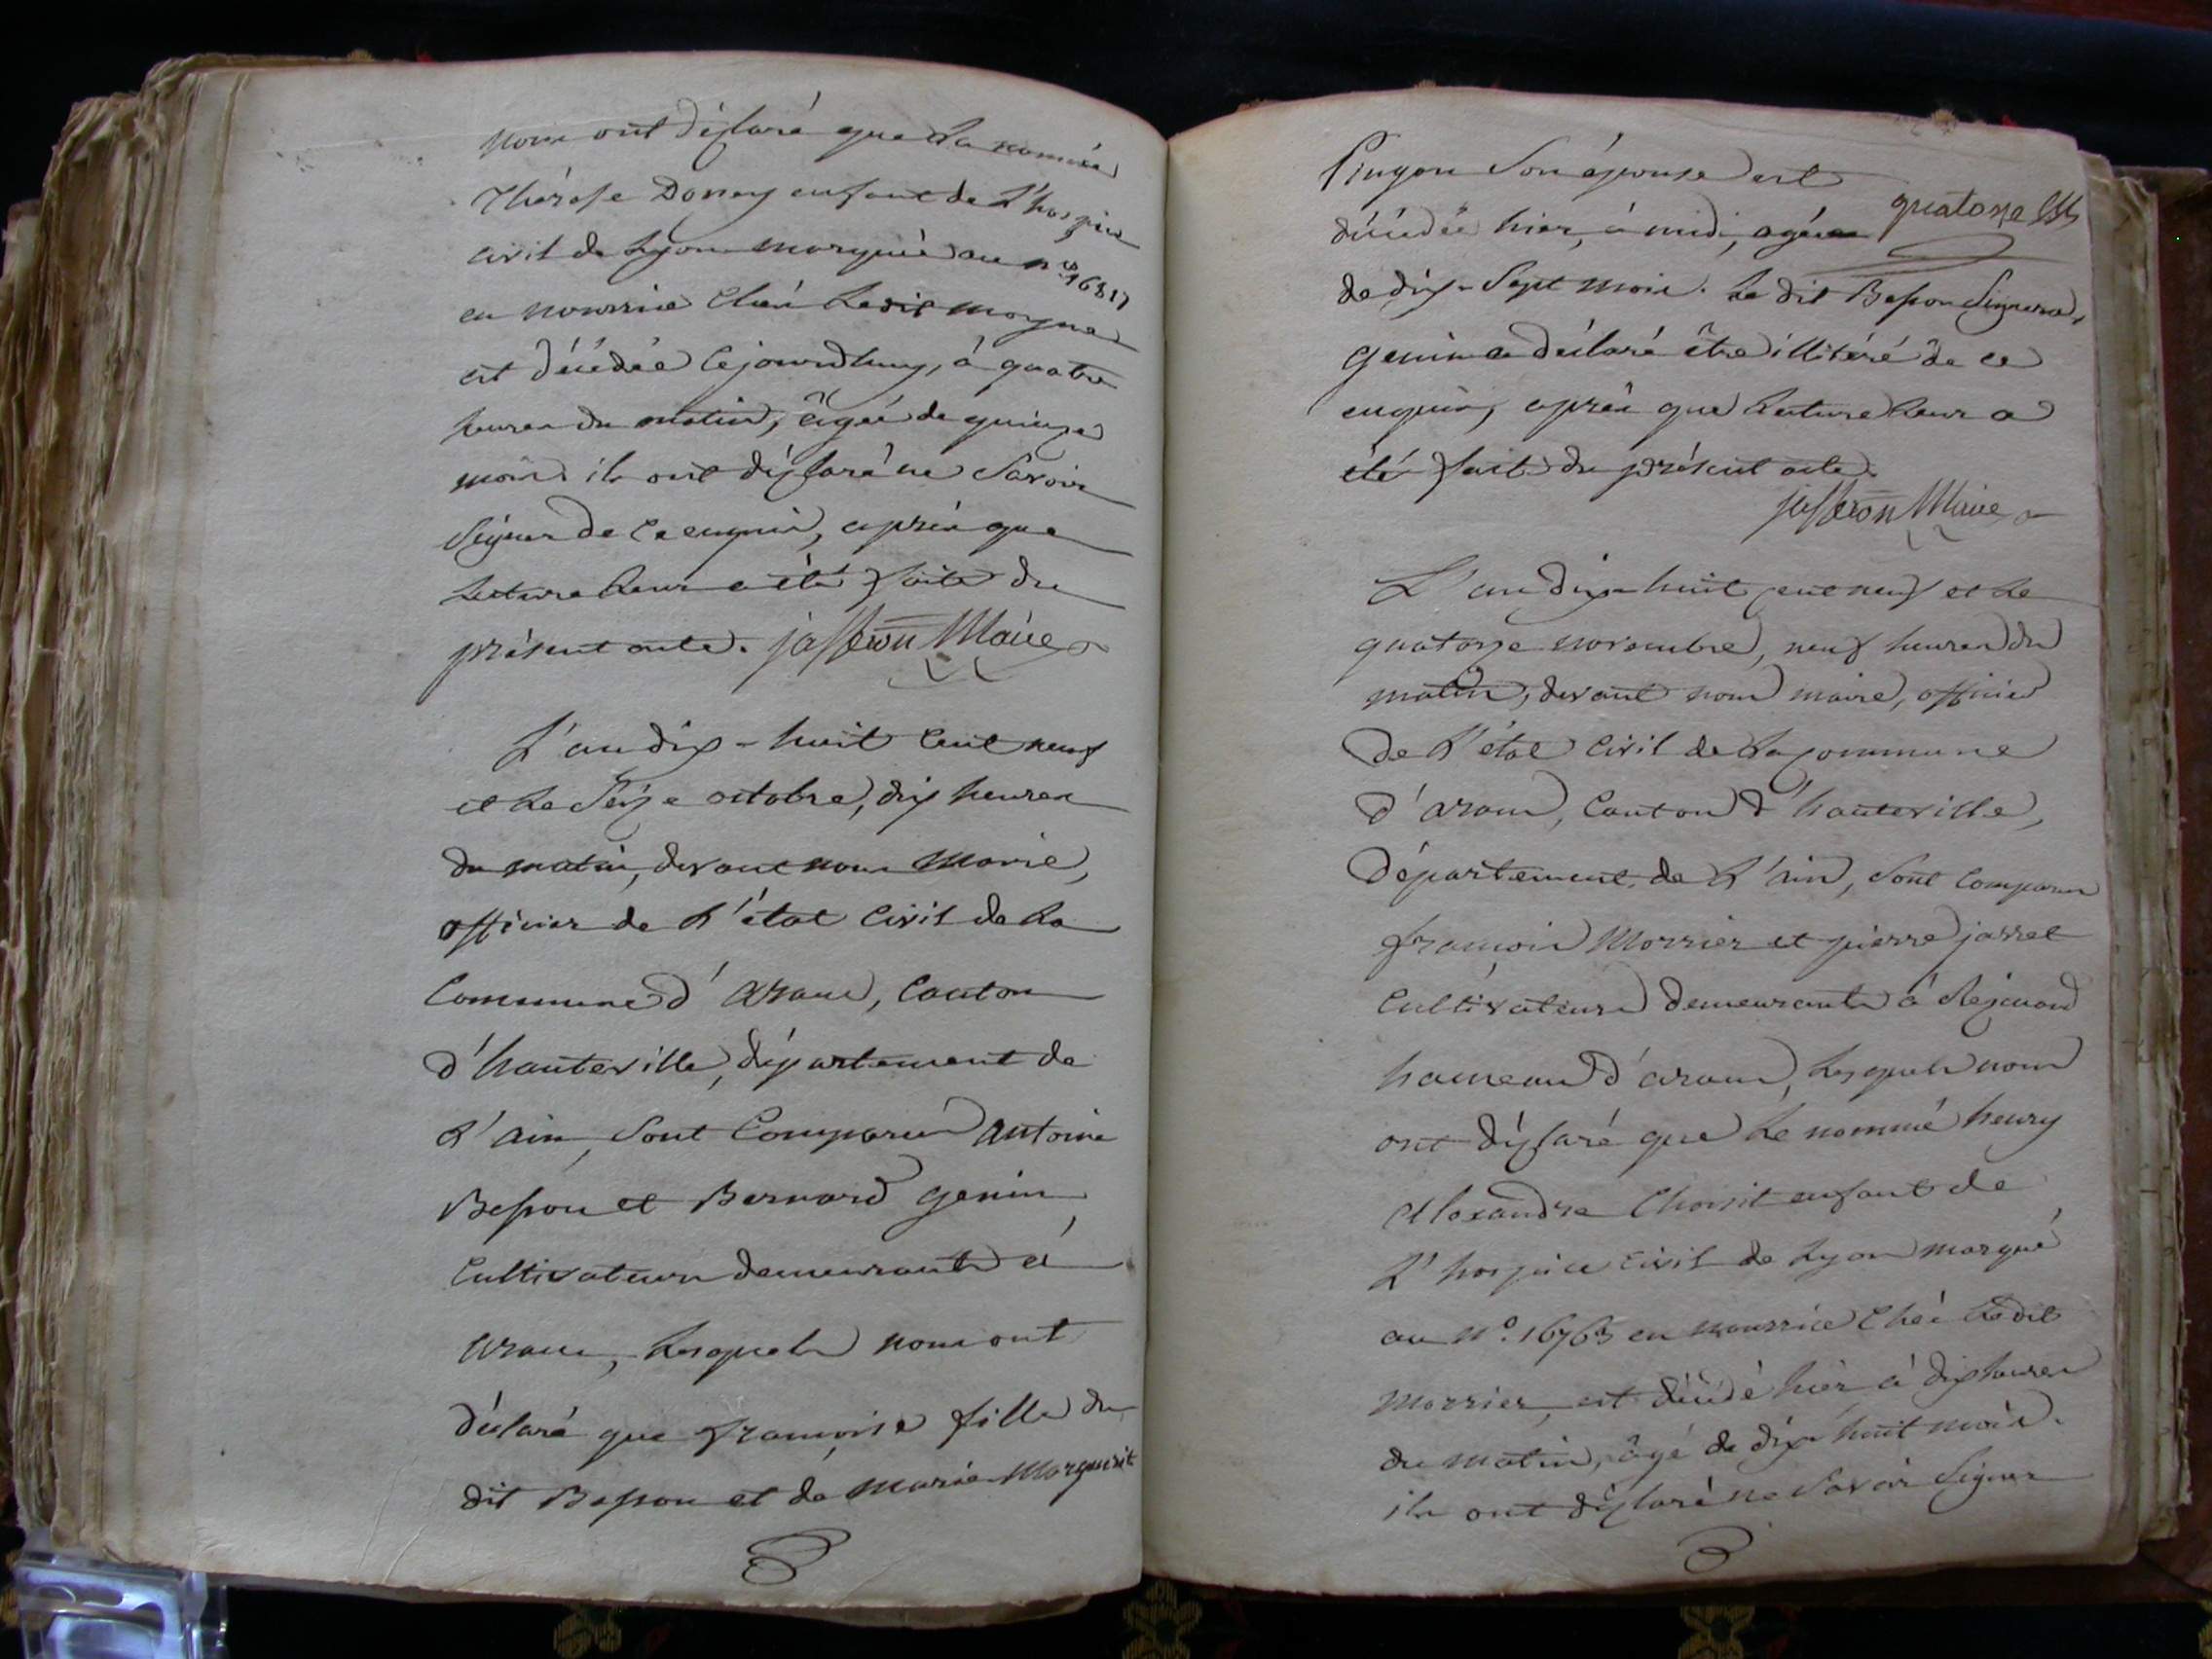 nous ont déclaré que la nommée
Thérèse Donney enfant de l'hospice
civil de Lyon marquée au n.o 16817
en nourrice chéz ledit
est décédée cejourdhuy, à quatre
heures du matin, âgée de quinze
mois. ils ont déclaré ne savoir
signer de ce enquis, après que
lecture leur a été faite du
présent acte. jasseron Maire
L'an dix-huit cent neuf
et le seize octobre, dix heures
du matin, devant nous Marie,
officier de l'état civil de la
commune d'aranc, canton
d'hauteville, département de
l'ain, sont comparus antoine
Besson et Bernard genin,
cultivateurs demeurants à
aranc, lesquels nous ont
déclaré que françoise fille du
dit Besson et de marie Marguerite
Pingon son épouse est
décédée hier, à midi, agée
quatorze
de dix-sept mois. Le dit Besson signera,
genin a déclaré être illitéré de ce
enquis, après que lecture leur a
été fait du présent acte.
jasseron Maire
L'an dix-huit cent neuf et le
quatorze novembre, neuf heures du
matin, devant nous maire, officier
de l'état civil de la commune
d'aranc, canton d'hauteville,
département de l'ain, sont comparus
françois Morrier et pierre jarret
cultivateurs demeurants à Rejouand
hameau d'aranc, lesquels nous
ont déclaré que le nommé henry
Alexandre Choisit enfant de
l'hospice civil de Lyon marqué
au n.o 16763 en nourrice chéz ledit
Morrier, est décédé hier à dix heures
du matin, âgé de dix-huit mois.
ils ont déclaré ne savoir signer